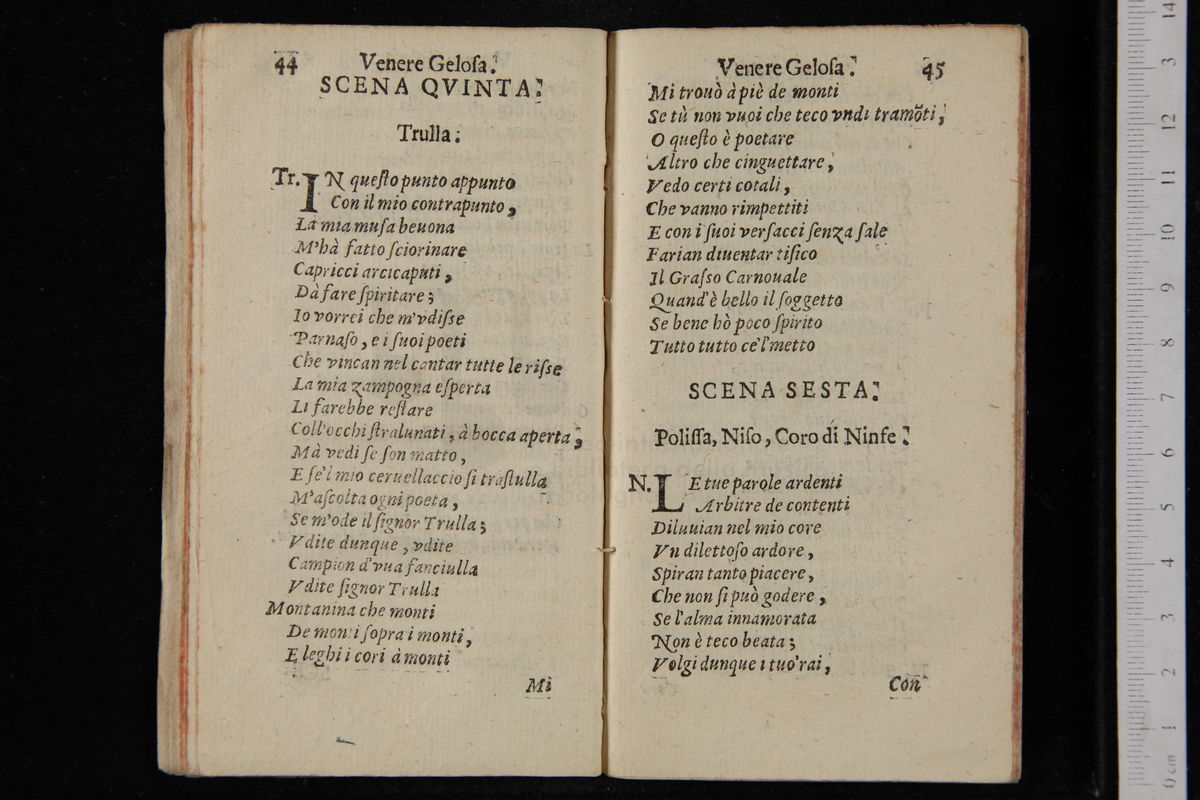 44 Venere Geloſa.
SCENA QVINTA.
Trulla.
Tr. IN queſto punto appunto
Con il mio contrapunto,
La mia muſa beuona
M'hà fatto ſciorinare
Capricci arcicaputi,
Dà fare ſpiritare;
Io vorrei che m'vdiſse
Parnaſo, e i ſuoi poeti
Che vincan nel cantar tutte le riſse
La mia zampogna eſperta
Li farebbe reſtare
Coll'occhi ſtralunati, à bocca aperta,
Mà vedi ſe ſon matto,
E ſe'l mio ceruellaccio ſi traſtulla
M'aſcolta ogni poeta,
Se m'ode il ſignor Trulla;
Vdite dunque, vdite
Campion d'vua fanciulla
Vdite ſignor Trulla
Montanina che monti
De monti ſopra i monti,
E leghi i cori à monti
Mi
Venere Geloſa. 45
Mi trouò à piè de monti
Se tù non vuoi che teco vndi tramõti,
O queſto è poetare
Altro che cinguettare,
Vedo certi cotali,
Che vanno rimpettiti
E con i ſuoi verſacci ſenza ſale
Farian diuentar tiſico
Il Graſso Carnouale
Quand'è bello il ſoggetto
Se bene hò poco ſpirito
Tutto tutto ce'l'metto
SCENA SESTA.
Poliſſa, Niſo, Coro di Ninfe.
N. LE tue parole ardenti
Arbitre de contenti
Diluuian nel mio core
Vn dilettoſo ardore,
Spiran tanto piacere,
Che non ſi può godere,
Se l'alma innamorata
Non è teco beata;
Volgi dunque i tuo'rai,
Con
0 cm 1 2 3 4 5 6 7 8 9 10 11 12 3 14